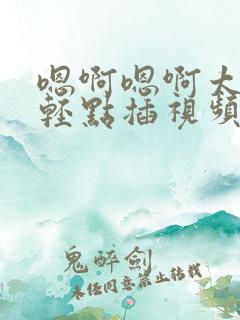 嗯啊嗯啊大
轻點插視頻
鬼醉劍
未经同意禁止转载